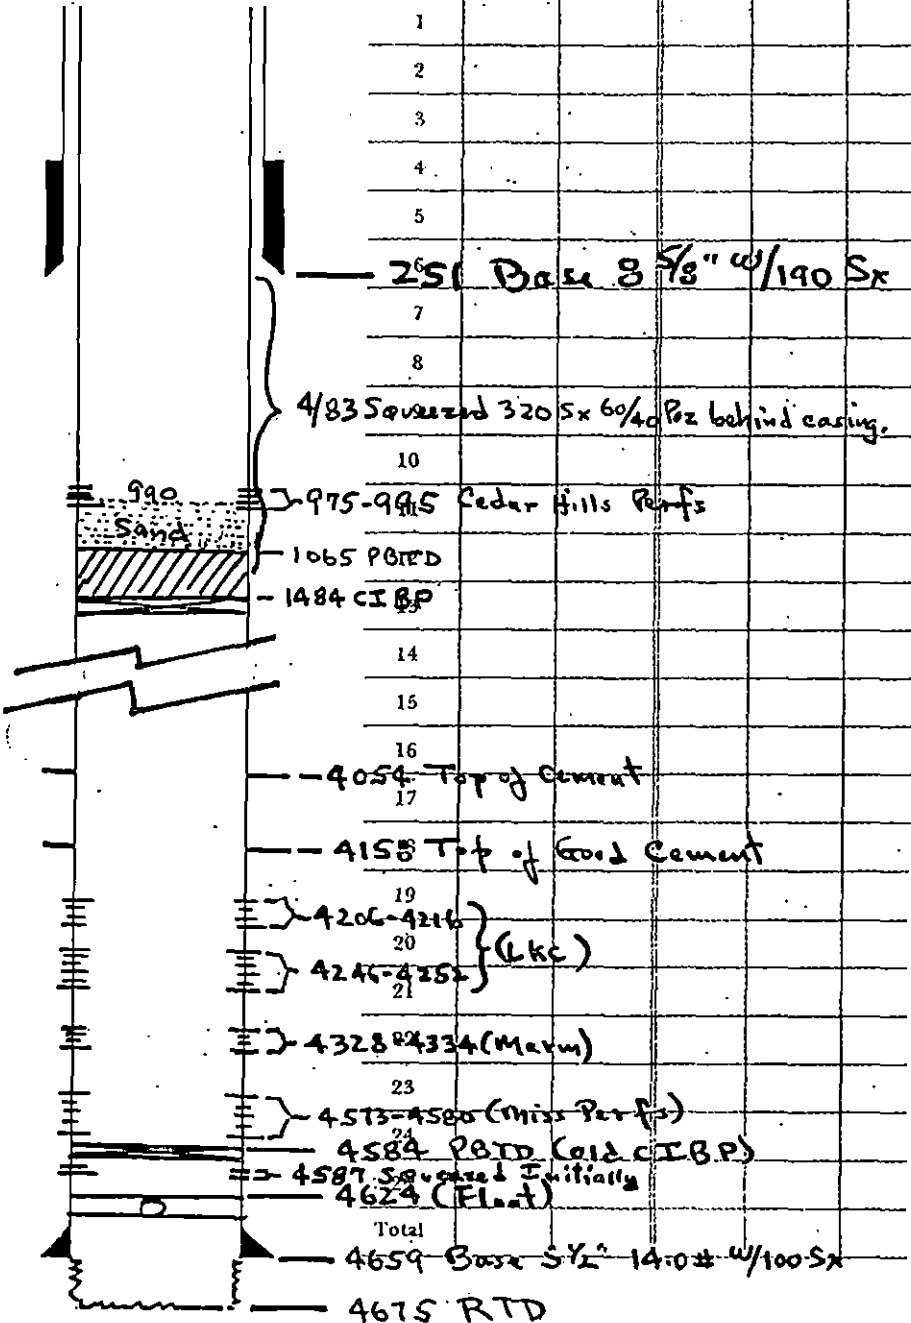 1
2
3
4
5
6
251 Base 8 5/8" w/190 Sx
7
8
4/83 Squeezed 320 Sx 60/40 Poz behind casing.
10
990
975-995 Cedar Hills Perfs
11
Sand
1065 PBTD
1484 CIBP
13
14
15
16
4054 Top of Cement
17
4158 Top of Good Cement
19
4206-4216
20
(LKC)
4246-4252
21
4328-4334 (Marm)
23
4573-4580 (Miss Perfs)
24
4584 PBTD (old CIBP)
4587 Squeezed Initially
4624 (Float)
Total
4659 Base 5 1/2" 14.0# w/100 Sx
4675 RTD